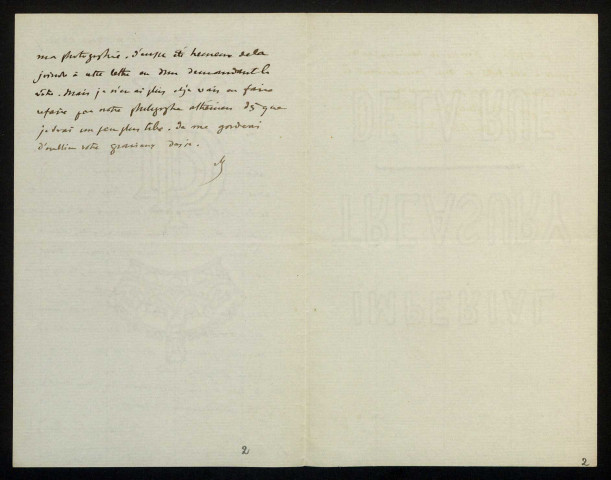 ma photographie. J'eusse été heureux de la
joindre à cette lettre en vous demandant la
vôtre. Mais je n'en ai plus et je vais en faire
refaire par notre photographe athénien dès que
je serai un peu plus libre. Je me garderai
d'oublier votre gracieux désir.
DE LA RUE
TREASURY
IMPERIAL
2
2